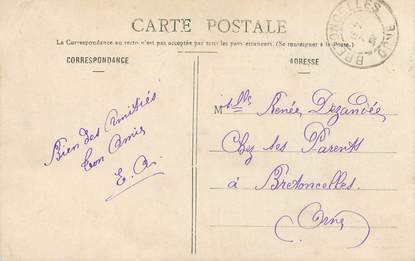 CARTE POSTALE
La Correspondance au recto n'est pas acceptée par tous les pays étrangers. (Se renseigner à la Poste.)
CORRESPONDANCE
ADRESSE
BRETONCELLES
ORNE
Bien des amitiés
Ton Amie
E. A.
Mlle Renée Dezandée
Chez ses Parents
à Bretoncelles
Orne